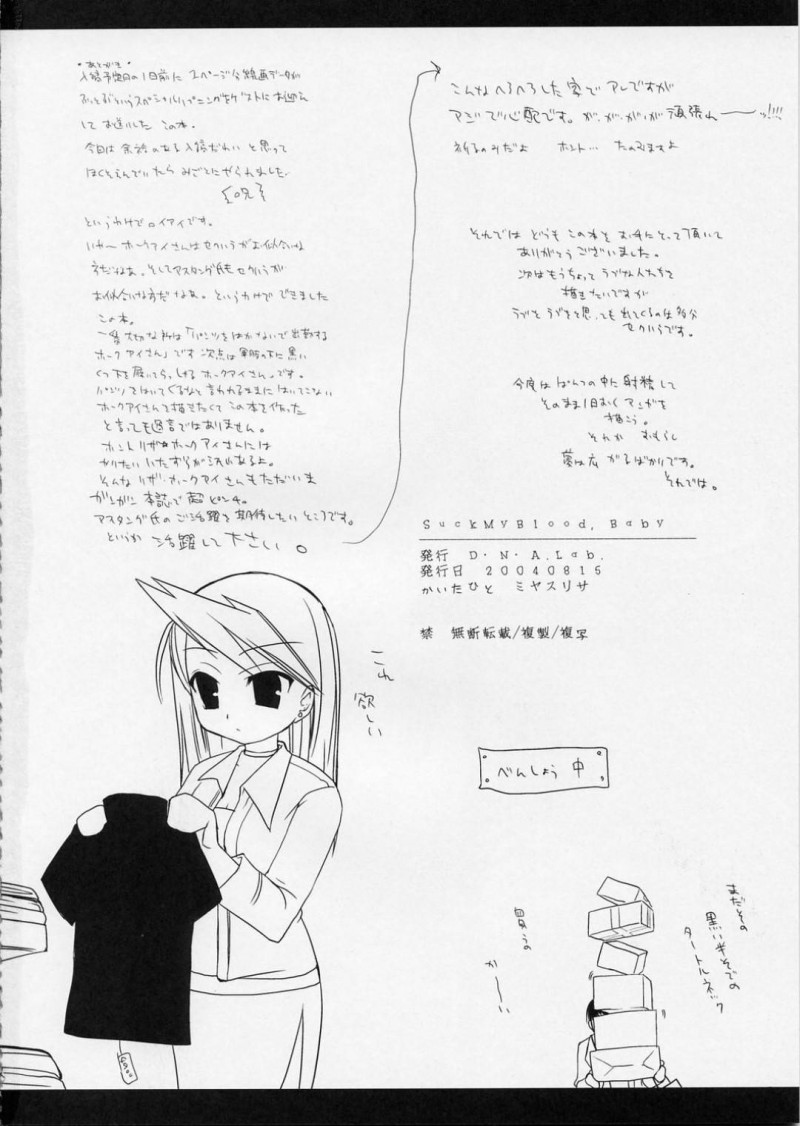 ・あとがき・
入稿予定日の1日前に2ページ分線画データが
して お送りした この本。
今回は 余裕のある入稿だわい と思って
ほくそえんでいたら みごとにやられました
というわけでロイアイです。
いや〜 ホークアイさんはセクハラがお似合いな
方だなあ。そしてアスタング氏もセクハラが
お似合いな方だなあ。というわけで できました
この本。
一番大切な所は「パンツをはかないで出勤する
ホークアイさん」です 次点は軍服の下に黒い
くつ下を履いてらっしゃるホークアイさん。です。
ホークアイさんを描きたくて この本を作った
と言っても過言ではありません。
ホント リザ・ホークアイさんには
やりたい いたずらが これあるよ。
そんな リザ・ホークアイさんもただいま
ガンガン本誌で超ピンチ。
アスタング氏の ご活躍を期待したい ところです。
というか 活躍して下さい。
こんな へろへろした 家で アレですが
アジで心配です。が、が、が、が 頑張れ ーーッ!!!!
祈るのみだよ ホント… たのみますよ
それでは どうも この本を お手にとって 頂いて
ありがとう ございました。
次はもうちょって ラブな人たちを
描きたいですが
ラブを ラブをと思っても 出てくるのは多分
セクハラです。
今度は ぱんつの中に 射精して
そのまま1日おく マンガを
描こう。
それか おもらし
夢は広がるばかりです。
それでは。
SuckMyBlood, Baby
発行 D・N・A.Lab.
発行日 20040815
かいたひと ミヤスリサ
禁 無断転載/複製/複写
これ
欲しい
べんしょう 中
まだその
黒い半そでの
タートルネック
買うの
かーーい